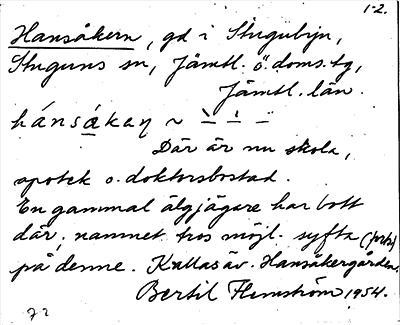 1-2.
Hansåkern, gd i Stugubyn,
Stuguns sn, Jämtl. ö. doms. tg,
Jämtl. län.
hánsåkaṇ ~
Där är nu skola,
apotek o. doktorsbostad.
En gammal älgjägare har bott
där, namnet tros möjl. syfta
på denne. Kallas äv. Hansåkergården.
Bertil Flemström 1954.
72